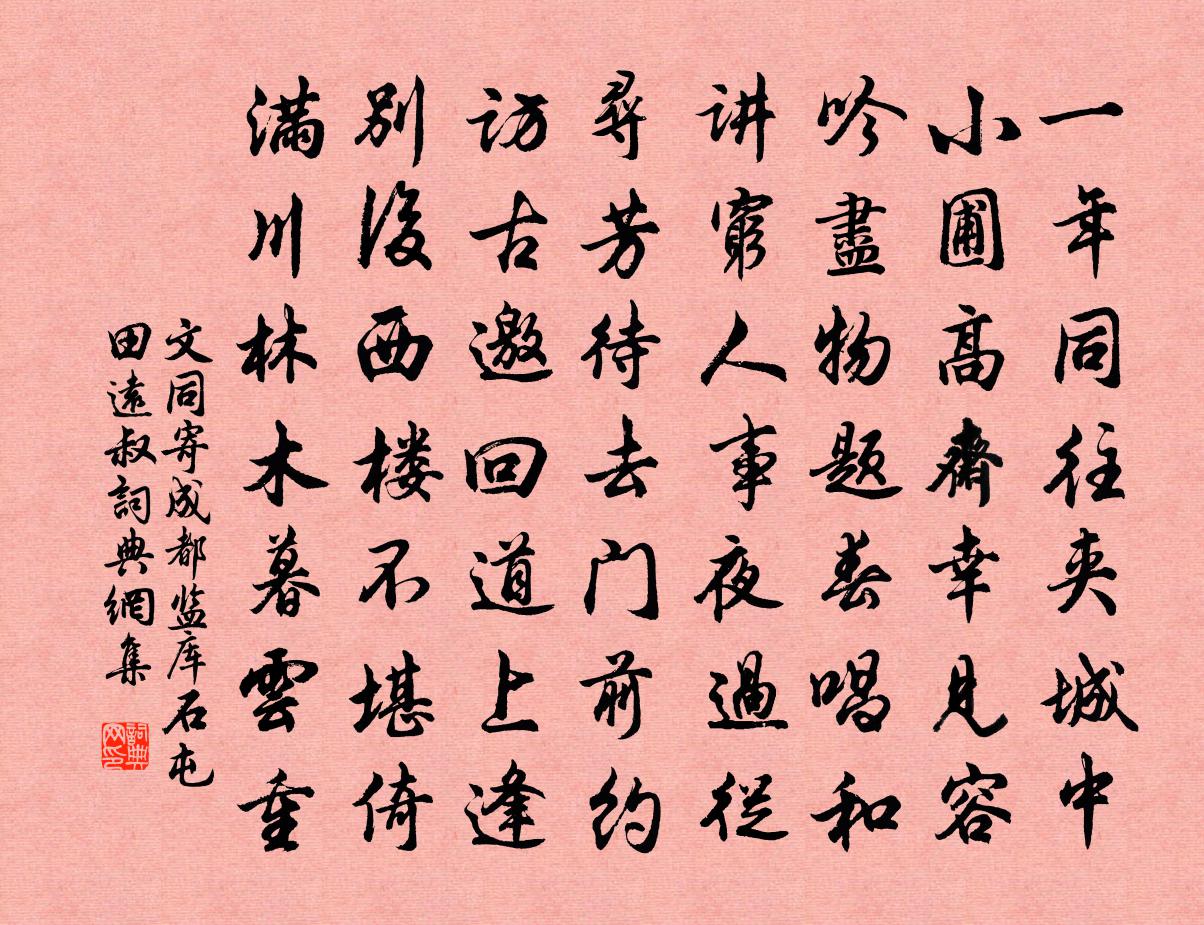 一年同往夹城中
小圃高齋幸见容
吟盡物题春唱和
讲窮人事夜過從
尋芳待去门前约
访古邀回道上逢
别後西楼不堪倚
满川林木暮雲重
文同寄成都监库石屯
田遠叔詞典網集
詞典
网印